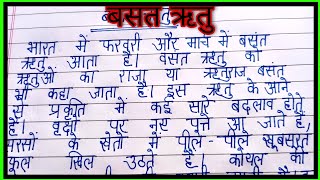 बसंत ऋतु
भारत में फरवरी और मार्च में बसंत
ऋतु आता है। वसंत ऋतु को
ऋतुओं का राजा या ऋतुराज बसंत
भी कहा जाता है। इस ऋतु के आने
से प्रकृति में कई सारे बदलाव होते
है। वृक्षों पर नए पत्ते आ जाते हैं,
सरसों के खेतों में पीले-पीले खूबसूरत
फूल खिल-उठते हैं। कोयल की